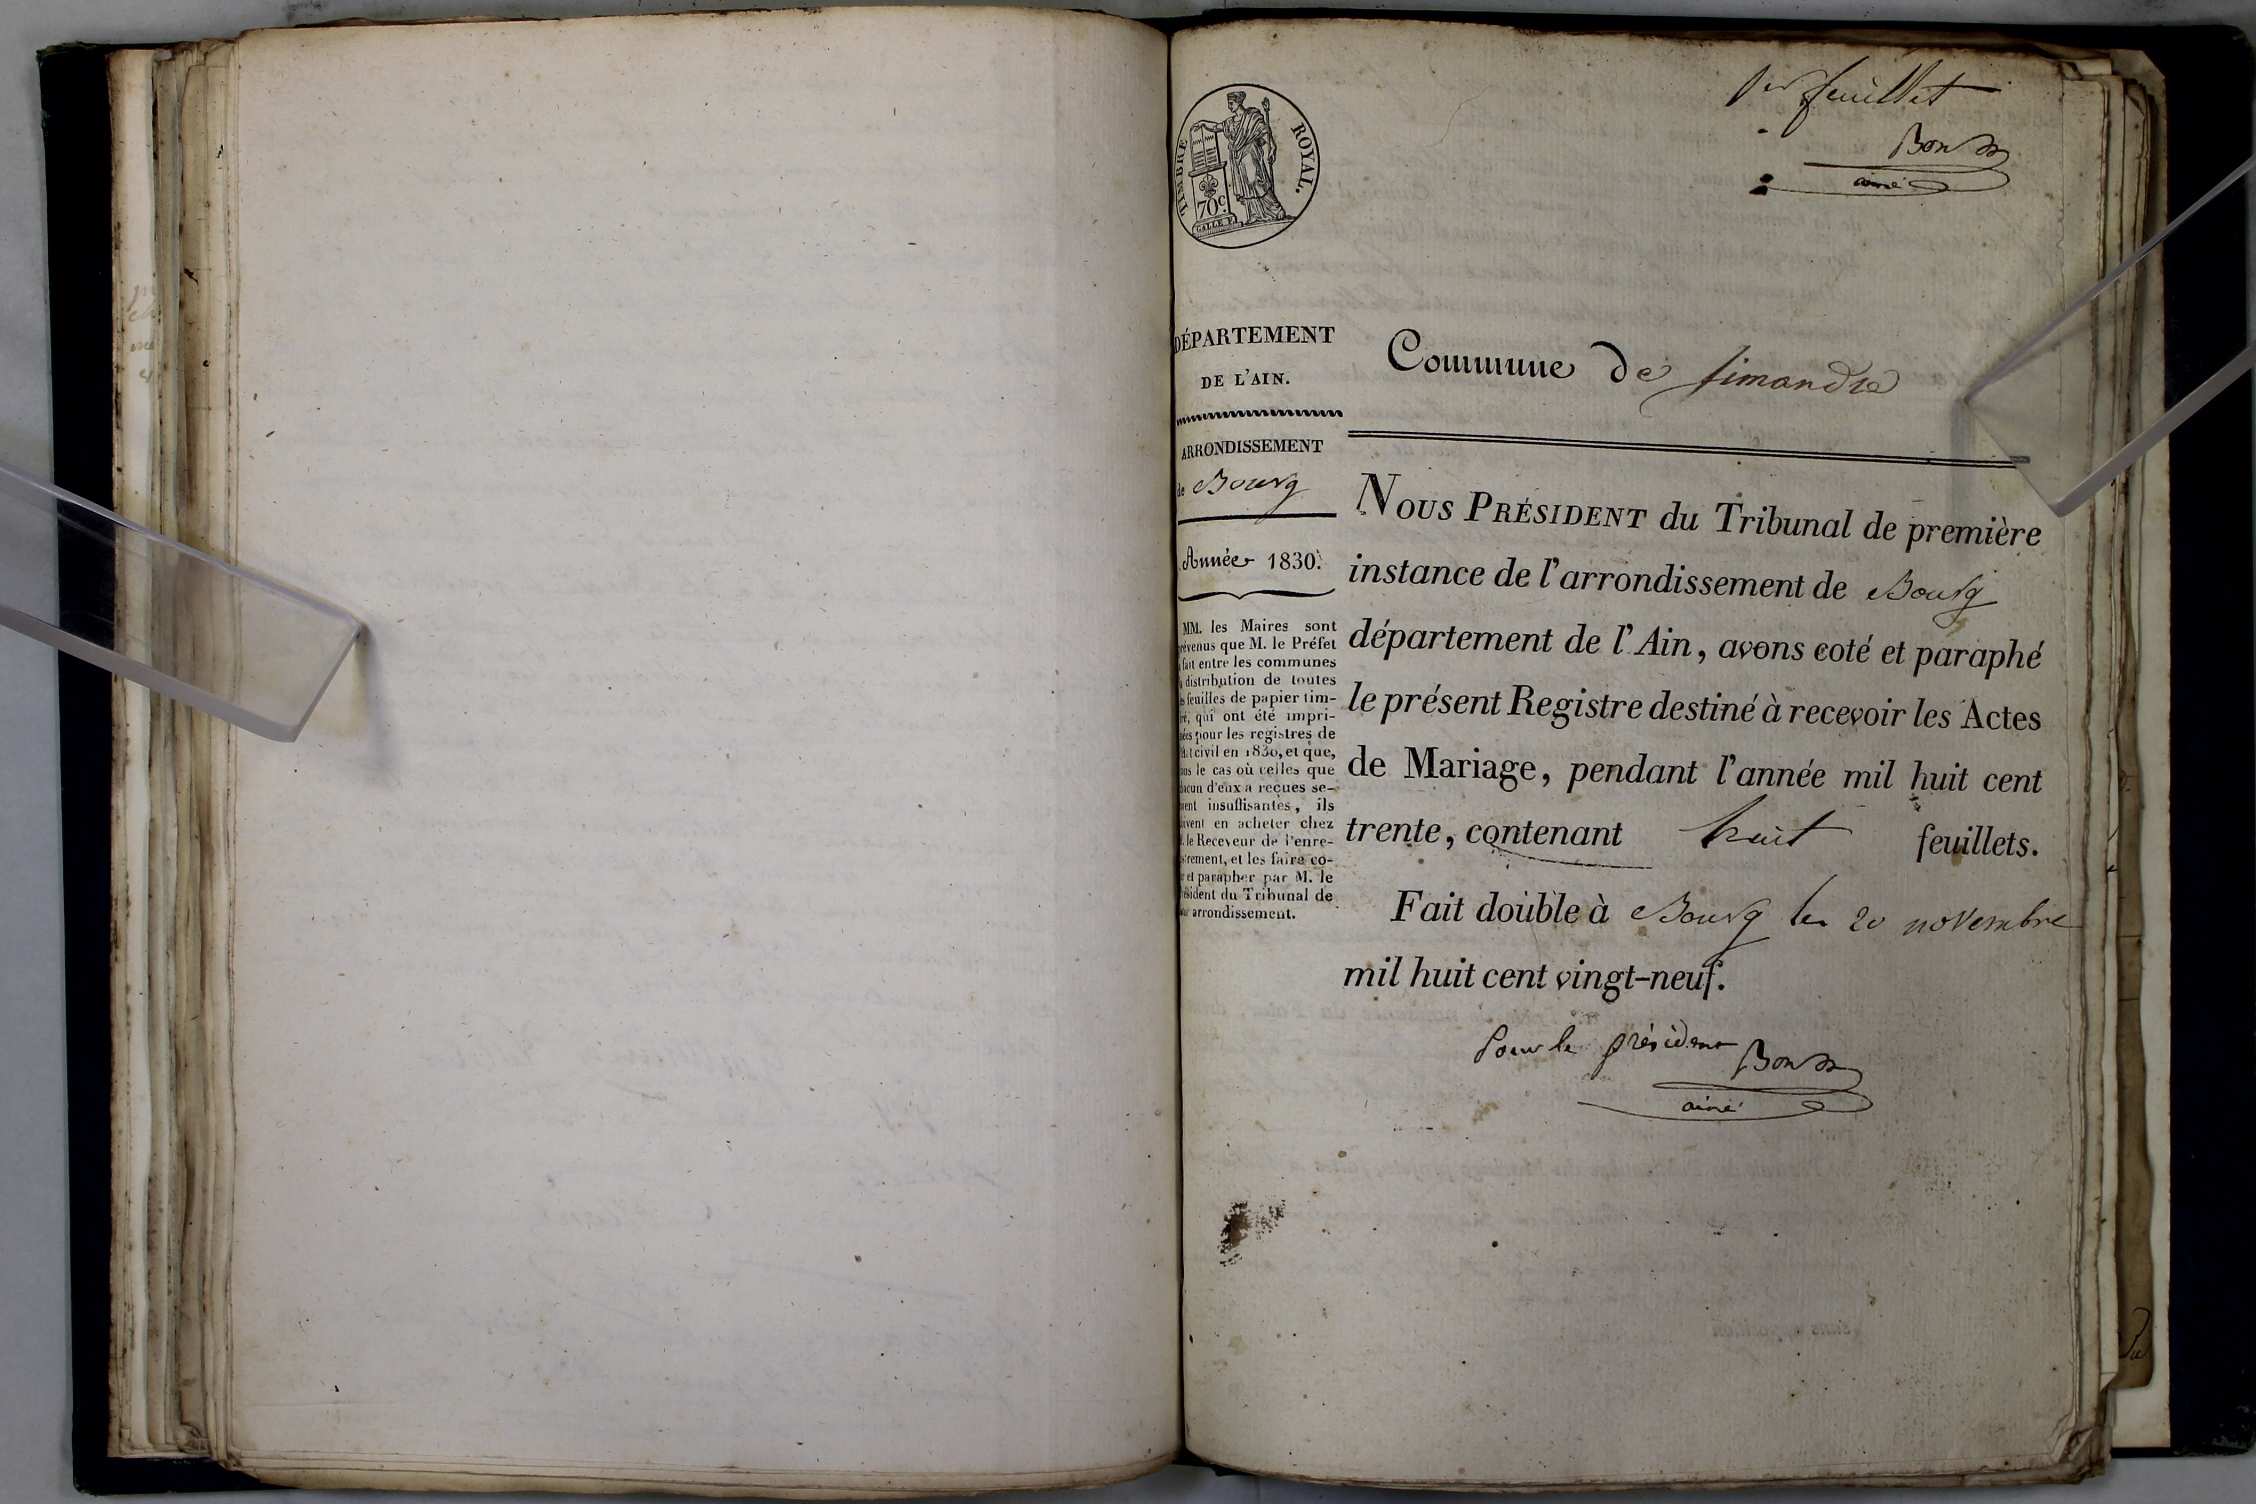 1er feuillet
Bon
ainé
TIMBRE ROYAL.
70c
GALLE F.
DÉPARTEMENT
DE L'AIN.
Commune de Simandre
ARRONDISSEMENT
de Bourg
Année 1830.
MM. les Maires sont
prévenus que M. le Préfet
a fait entre les communes
la distribution de toutes
les feuilles de papier tim-
bré, qui ont été impri-
mées pour les registres de
l'état civil en 1830, et que,
dans le cas où celles que
chacun d'eux a reçues se-
raient insuffisantes, ils
doivent en acheter chez
M. le Receveur de l'enre-
gistrement, et les faire co-
ter et parapher par M. le
Président du Tribunal de
arrondissement.
NOUS PRÉSIDENT du Tribunal de première
instance de l'arrondissement de Bourg
département de l'Ain, avons coté et paraphé
le présent Registre destiné à recevoir les Actes
de Mariage, pendant l'année mil huit cent
trente, contenant huit feuillets.
Fait double à Bourg le 20 novembre
mil huit cent vingt-neuf.
Pour le président
Bon
ainé